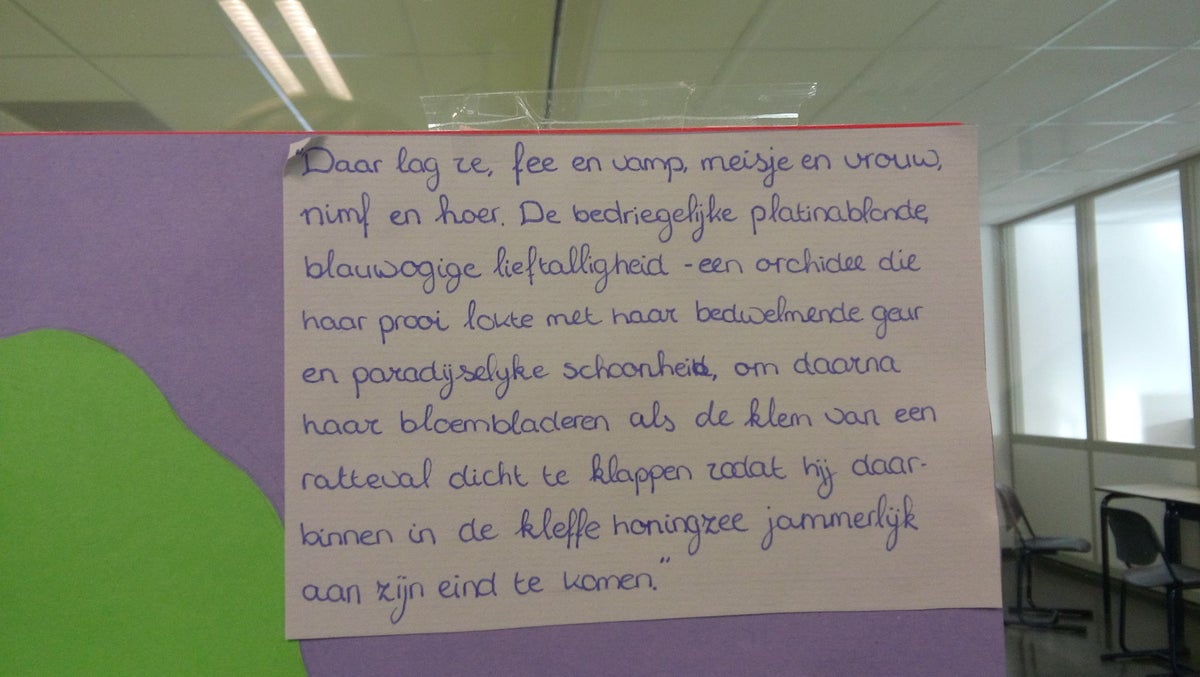 "Daar lag ze, fee en vamp, meisje en vrouw,
nimf en hoer. De bedriegelijke platinablonde,
blauwogige lieftalligheid - een orchidee die
haar prooi lokte met haar bedwelmende geur
en paradijselyke schoonheid, om daarna
haar bloembladeren als de klem van een
ratteval dicht te klappen zodat hij daar-
binnen in de kleffe honingzee jammerlijk
aan zijn eind te komen."